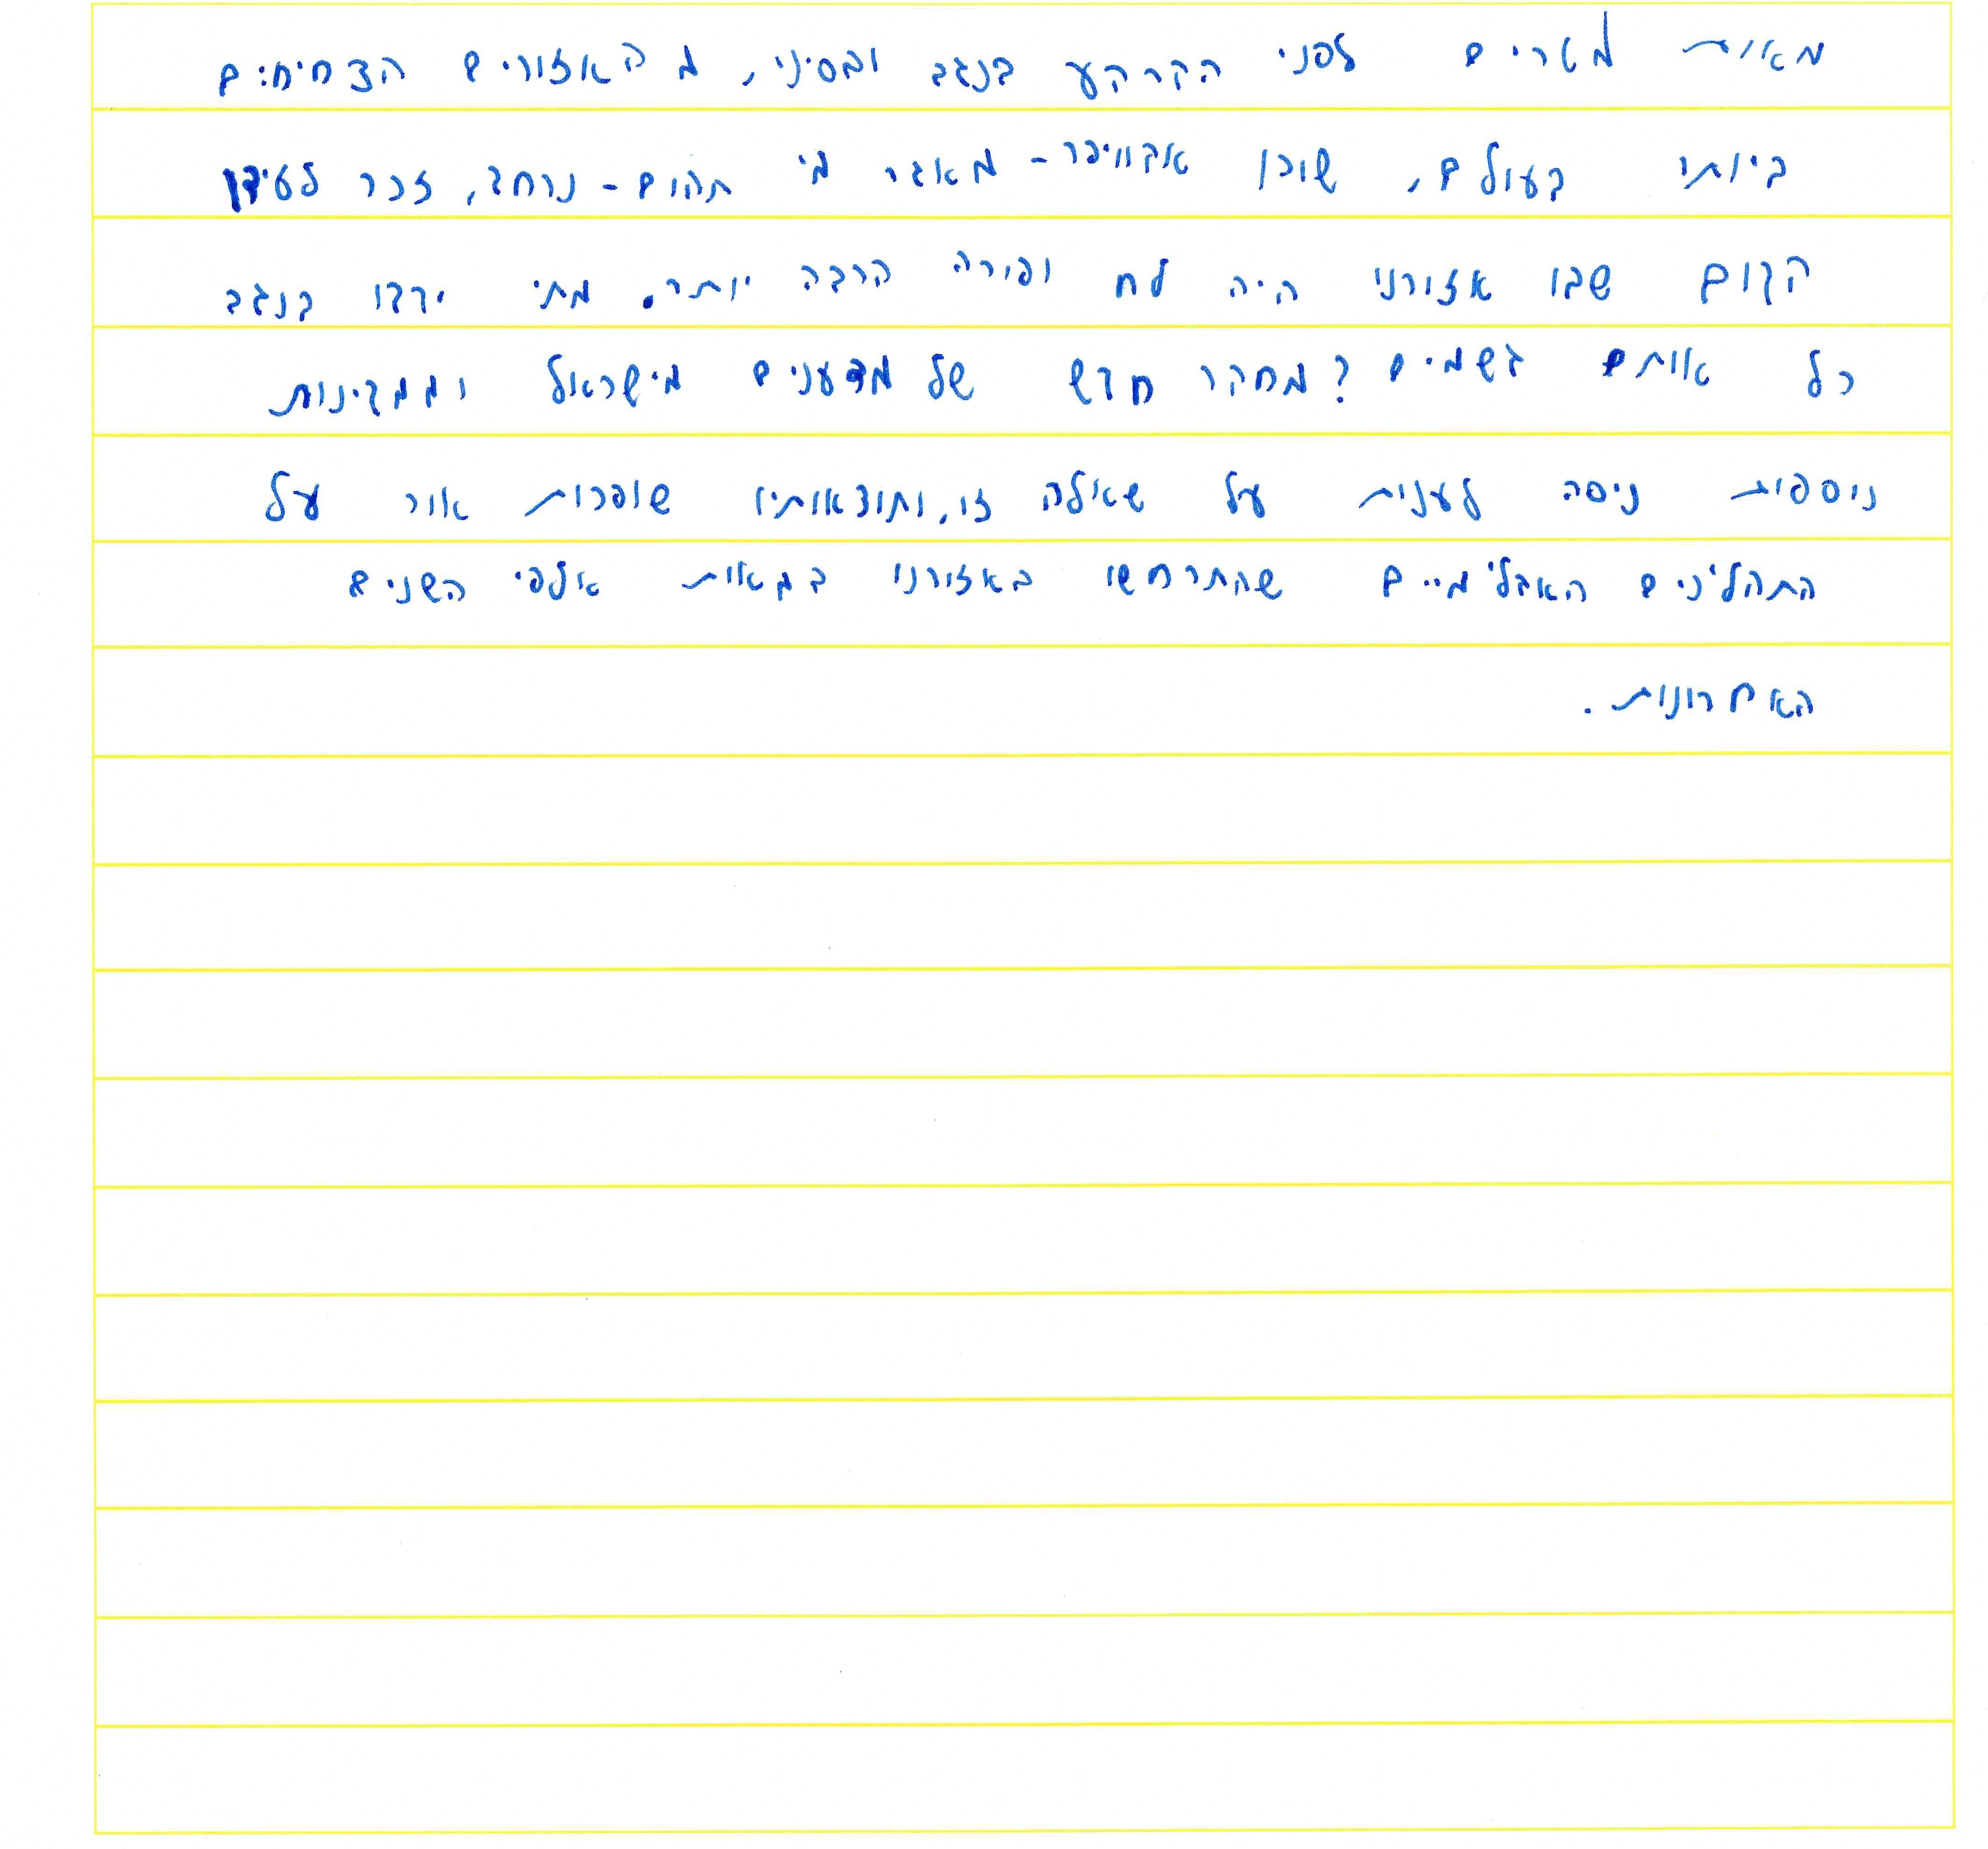 מאות מטרים לפני הקרקע בנגב ובסיני, מ האזורים הצחיחים
ביותר בעולם, שוכן אקוויפר - מאגר מי תהום - נרחב, זכר לעידן
קדום שבו אזורנו היה לח ופורה הרבה יותר. מתי ירדו בנגב
כל אותם גשמים? מחקר חדש של מדענים מישראל וממדינות
נוספות ניסה לענות על שאלה זו, ותוצאותיו שופכות אור על
התהליכים האקלימיים שהתרחשו באזורנו במאות אלפי השנים
האחרונות.